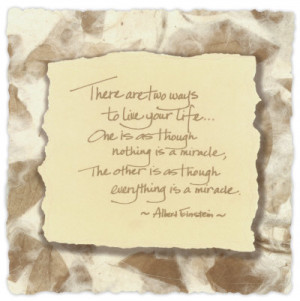 There are two ways
to live your life...
One is as though
nothing is a miracle,
The other is as though
everything is a miracle.
~ Albert Einstein ~